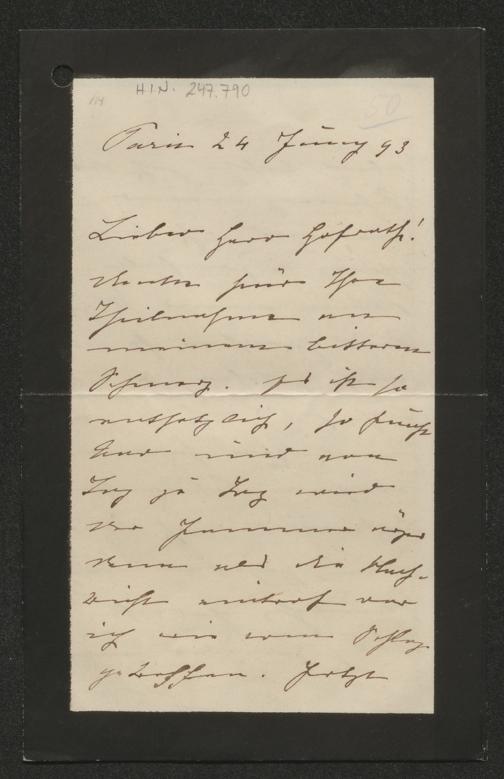 H.I.N. 247.790
114
50
Paris 24 Juny 93
Lieber Herr Hofrath!
Danke für Ihre
Theilnahme an
meinem bitteren
Schmerz. Es ist so
entsetzlich, so furcht
bar und von
Tag zu Tag wird
der Jammer ärger
denn als die Nach-
richt eintraf war
ich wie vom Schlag
getroffen. Jetzt